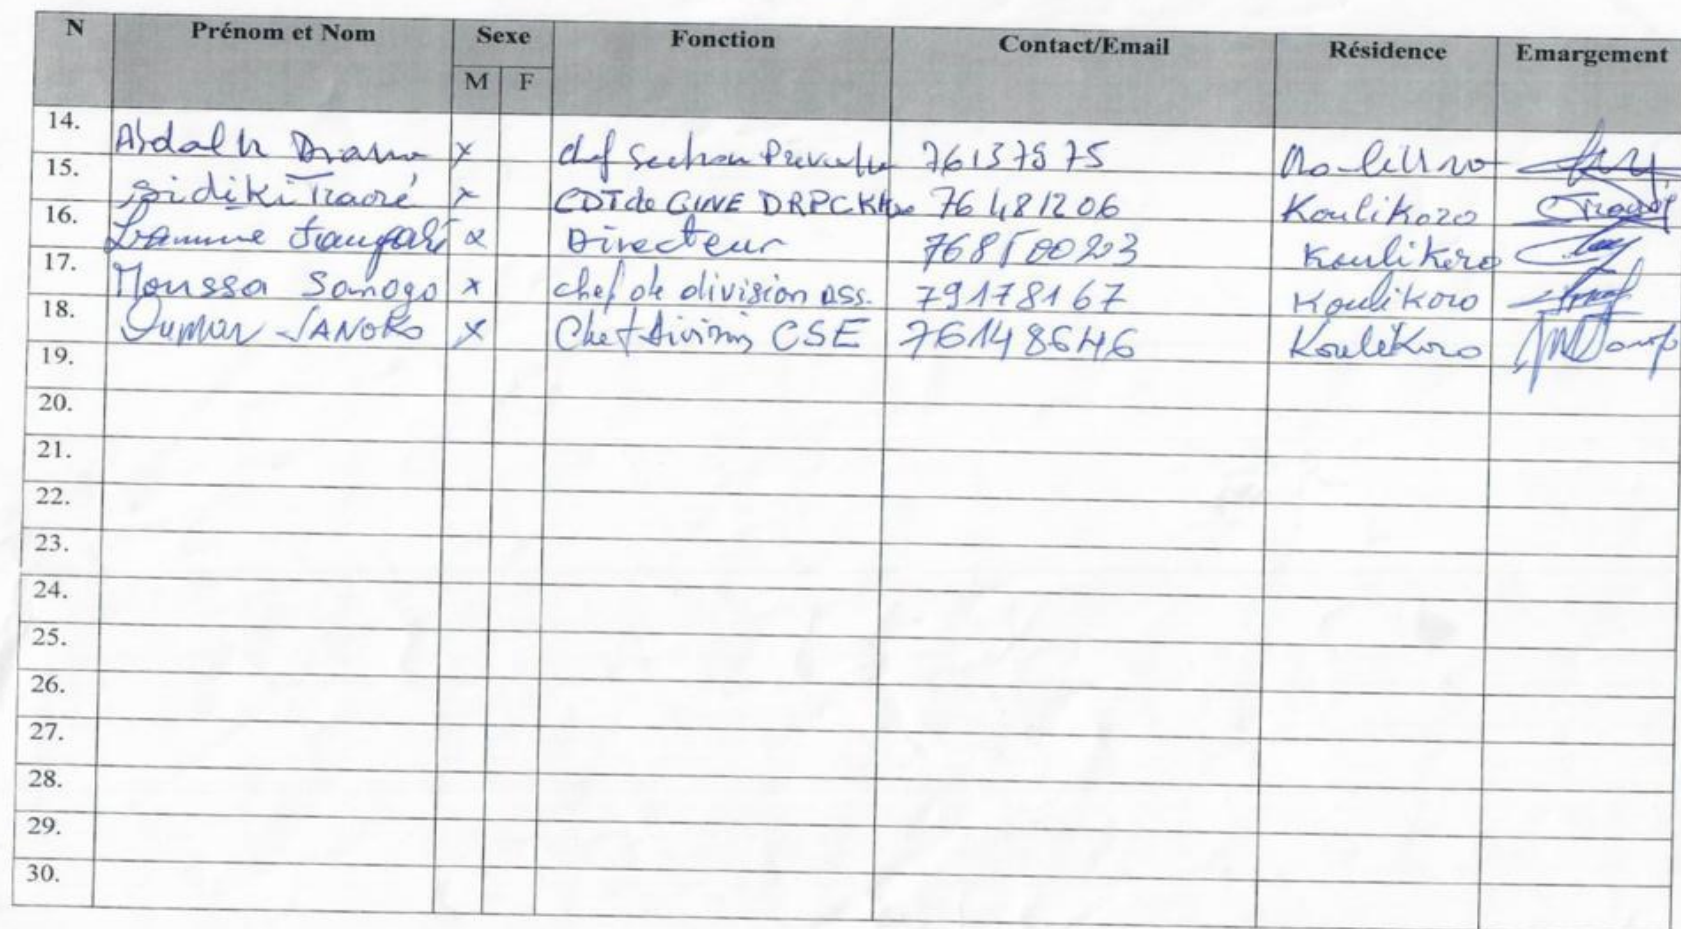 N Prénom et Nom Sexe Fonction Contact/Email Résidence Emargement
M F
14. x chef Section 76137575
15. Sidiki Traoré x CDT de 76481206 Koulikoro
16. x Directeur 76850023 Koulikoro
17. Moussa Sanogo x chef de division ass. 79178167 Koulikoro
18. Oumar SANOKO x Chef division CSE 76148646 Koulikoro
19.
20.
21.
22.
23.
24.
25.
26.
27.
28.
29.
30.